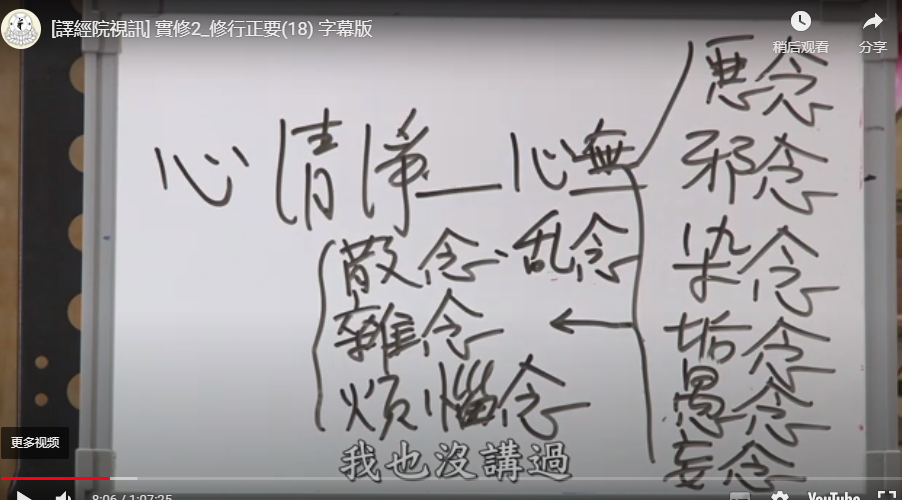 [譯經院視訊] 實修2_修行正要(18) 字幕版
稍后观看
分享
心清淨—心無
惡念
邪念
染念
垢念
愚念
妄念
散念、乱念
雜念
煩惱念
更多视频
我也沒講過
8:06 / 1:07:25
YouTube